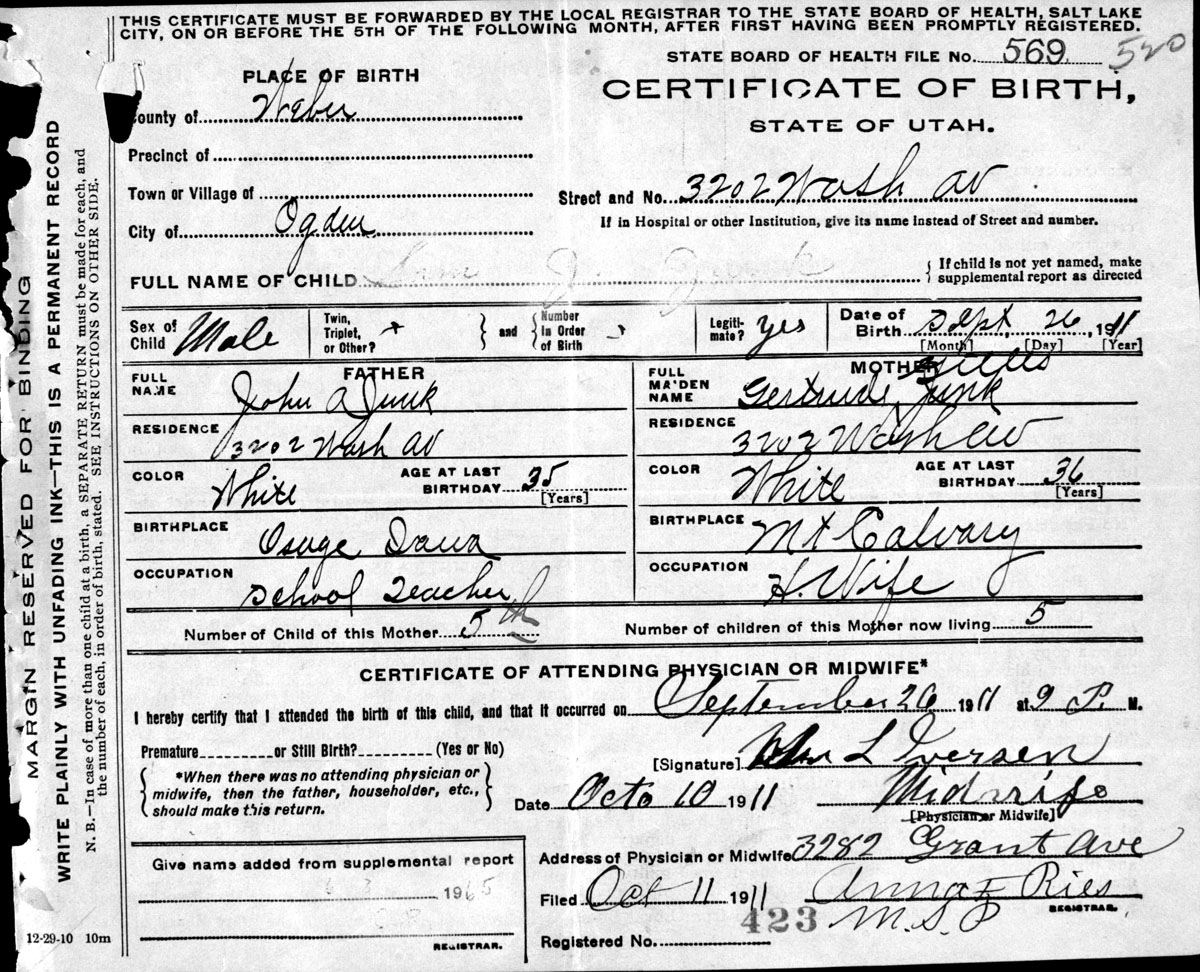 THIS CERTIFICATE MUST BE FORWARDED BY THE LOCAL REGISTRAR TO THE STATE BOARD OF HEALTH, SALT LAKE
CITY, ON OR BEFORE THE 5TH OF THE FOLLOWING MONTH, AFTER FIRST HAVING BEEN PROMPTLY REGISTERED.
STATE BOARD OF HEALTH FILE No. 569 520
PLACE OF BIRTH
CERTIFICATE OF BIRTH,
STATE OF UTAH.
County of Weber
Precinct of
Town or Village of
Street and No. 3202 Wash av
City of Ogden
If in Hospital or other Institution, give its name instead of Street and number.
FULL NAME OF CHILD
{ If child is not yet named, make
supplemental report as directed
Sex of Child Male
Twin, Triplet, or Other?
} and { Number In Order of Birth
Legiti-mate? yes
Date of Birth Sept. 26, 1911
[Month] [Day] [Year]
FATHER
FULL NAME John A Junk
RESIDENCE 3202 Wash av
COLOR White
AGE AT LAST BIRTHDAY 35
[Years]
BIRTHPLACE Osage Iowa
OCCUPATION School Teacher
MOTHER
FULL MAIDEN NAME Gertrude Junk
RESIDENCE 3202 Wash av
COLOR White
AGE AT LAST BIRTHDAY 36
[Years]
BIRTHPLACE Mt Calvary
OCCUPATION H. Wife
Number of Child of this Mother 5th
Number of children of this Mother now living 5
CERTIFICATE OF ATTENDING PHYSICIAN OR MIDWIFE*
I hereby certify that I attended the birth of this child, and that it occurred on September 26 1911 at 9 P. M.
Premature or Still Birth? (Yes or No)
{ *When there was no attending physician or
midwife, then the father, householder, etc.,
should make this return. }
[Signature] L Iversen
Date Octo 10 1911
Midwife
[Physician or Midwife]
Give name added from supplemental report
1965
REGISTRAR.
Address of Physician or Midwife 3282 Grant Ave
Filed Oct 11 1911
Anna F Ries
REGISTRAR.
M.S.P
423
Registered No.
12-29-10 10m
MARGIN RESERVED FOR BINDING
WRITE PLAINLY WITH UNFADING INK—THIS IS A PERMANENT RECORD
N. B.—In case of more than one child at a birth, a SEPARATE RETURN must be made for each, and
the number of each, in order of birth, stated. SEE INSTRUCTIONS ON OTHER SIDE.